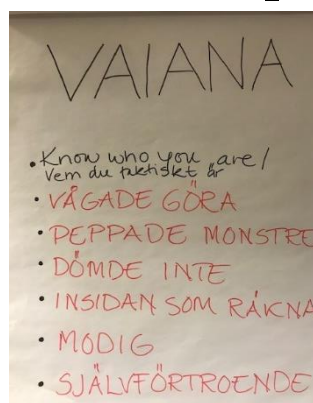 VAIANA
• Know who you are /
Vem du faktiskt är
• VÅGADE GÖRA
• PEPPADE MONSTRE
• DÖMDE INTE
• INSIDAN SOM RÄKNA
• MODIG
• SJÄLVFÖRTROENDE